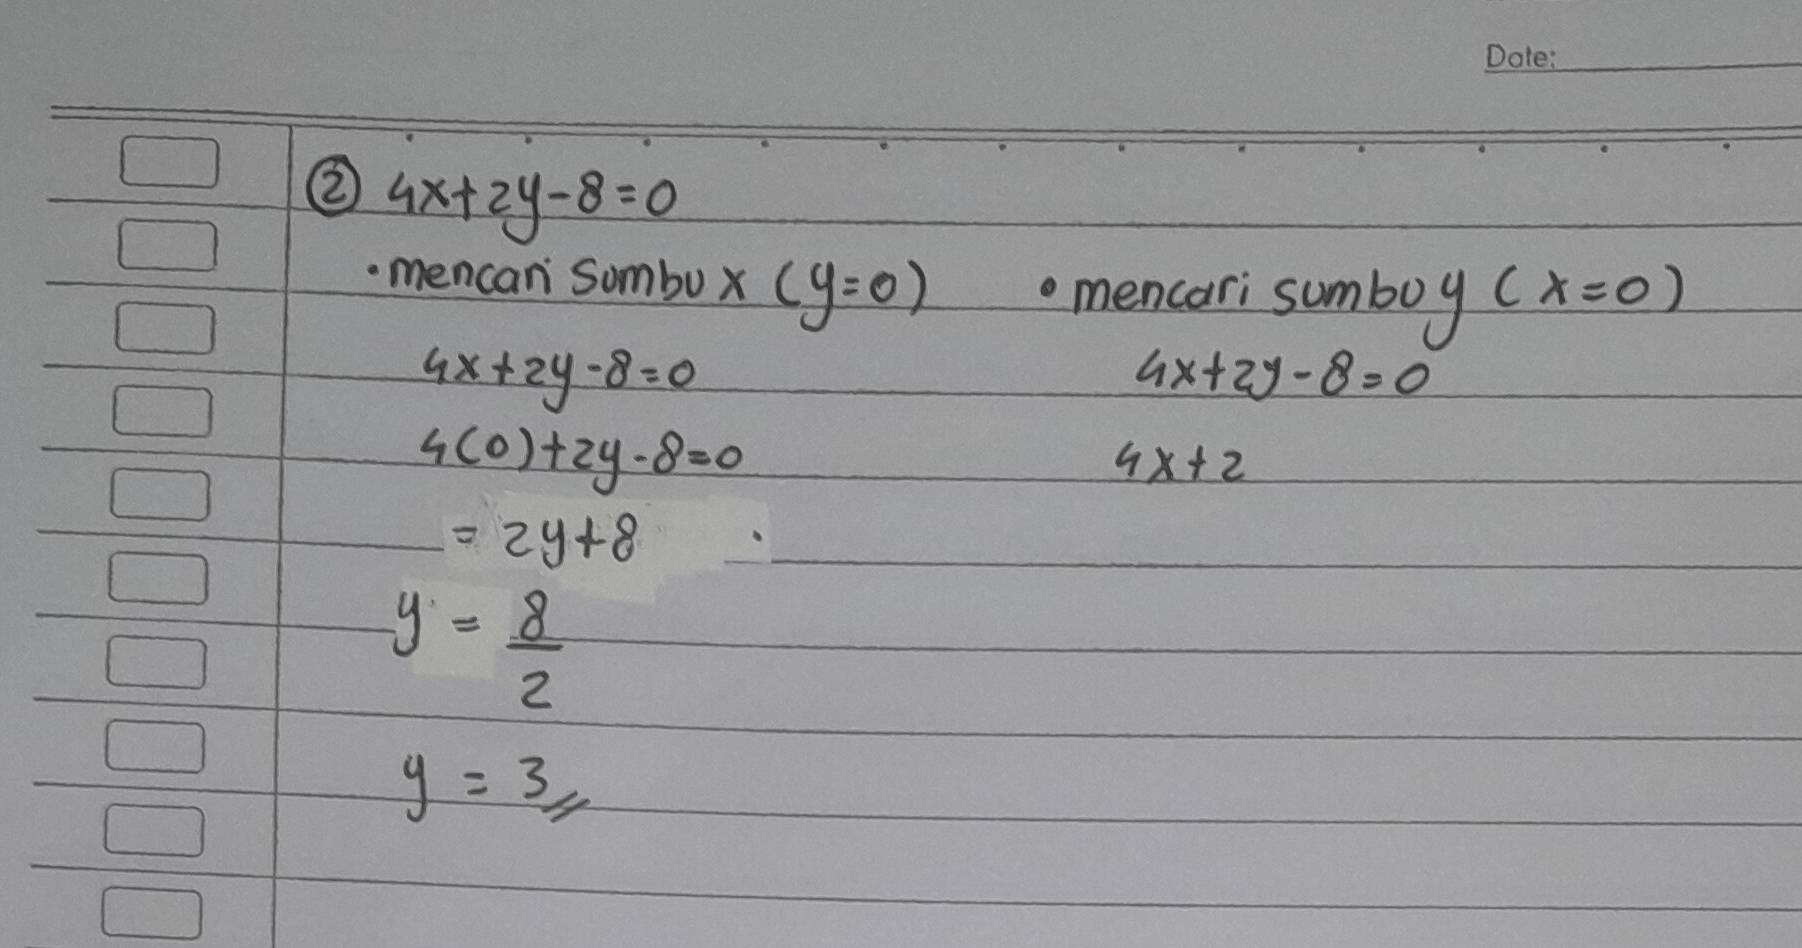 Date:
② 4x+2y-8=0
• mencari Sumbu x (y=0)
4x+2y-8=0
4(0)+2y-8=0
= 2y+8
y = 8/2
y = 3
• mencari sumbu y (x=0)
4x+2y-8=0
4x+2